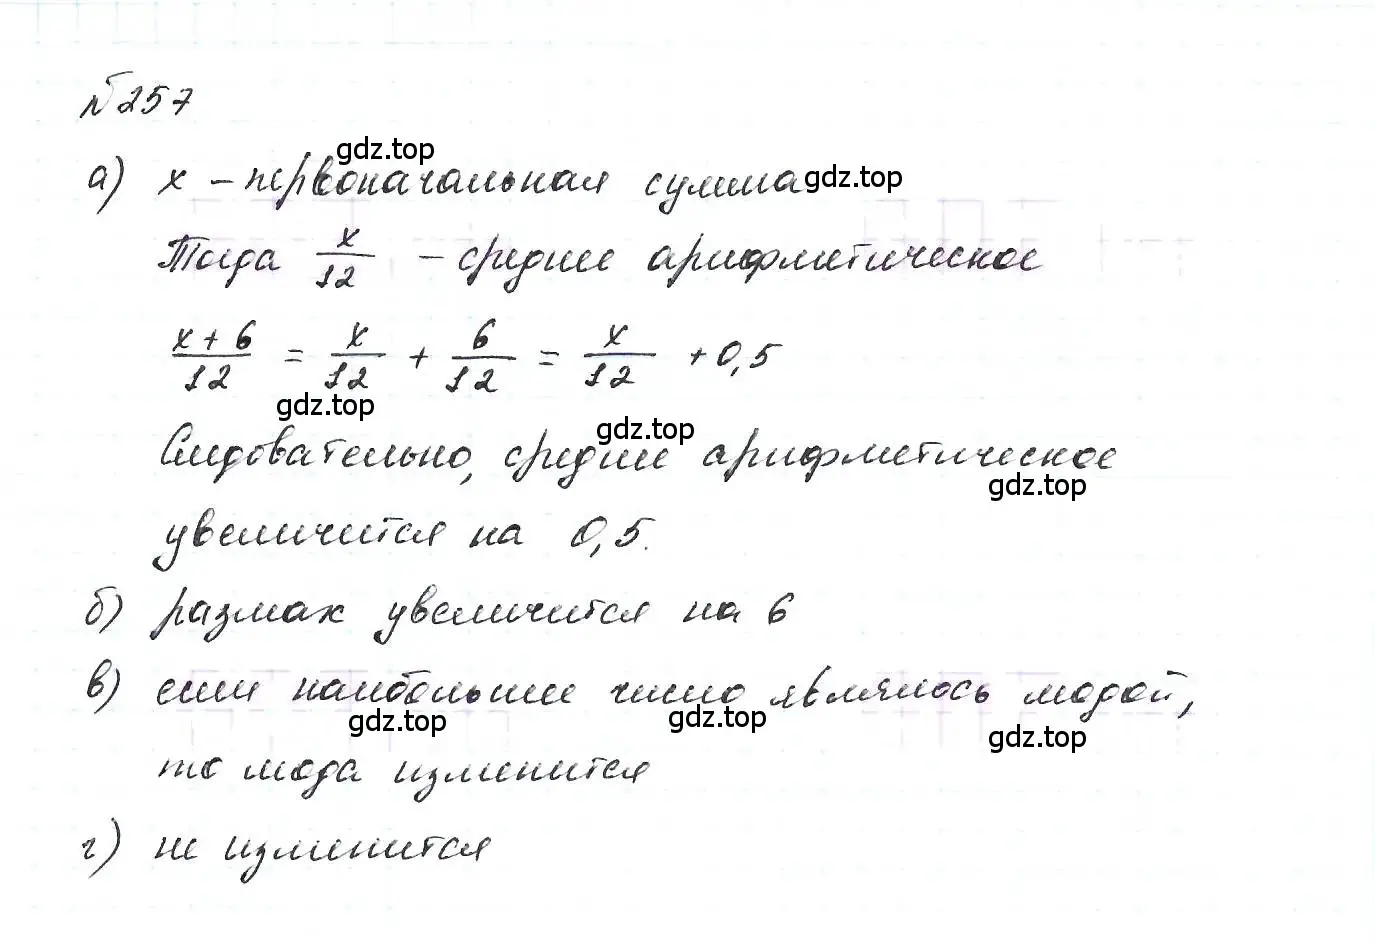 №257
а) x – первоначальная сумма
Тогда x/12 – среднее арифметическое
x+6/12 = x/12 + 6/12 = x/12 + 0,5
Следовательно, среднее арифметическое
увеличится на 0,5.
б) размах увеличится на 6
в) если наибольшее число являлось модой,
то мода изменится
г) не изменится
gdz.top
gdz.top
gdz.top
gdz.top
gdz.top
gdz.top
gdz.top
gdz.top